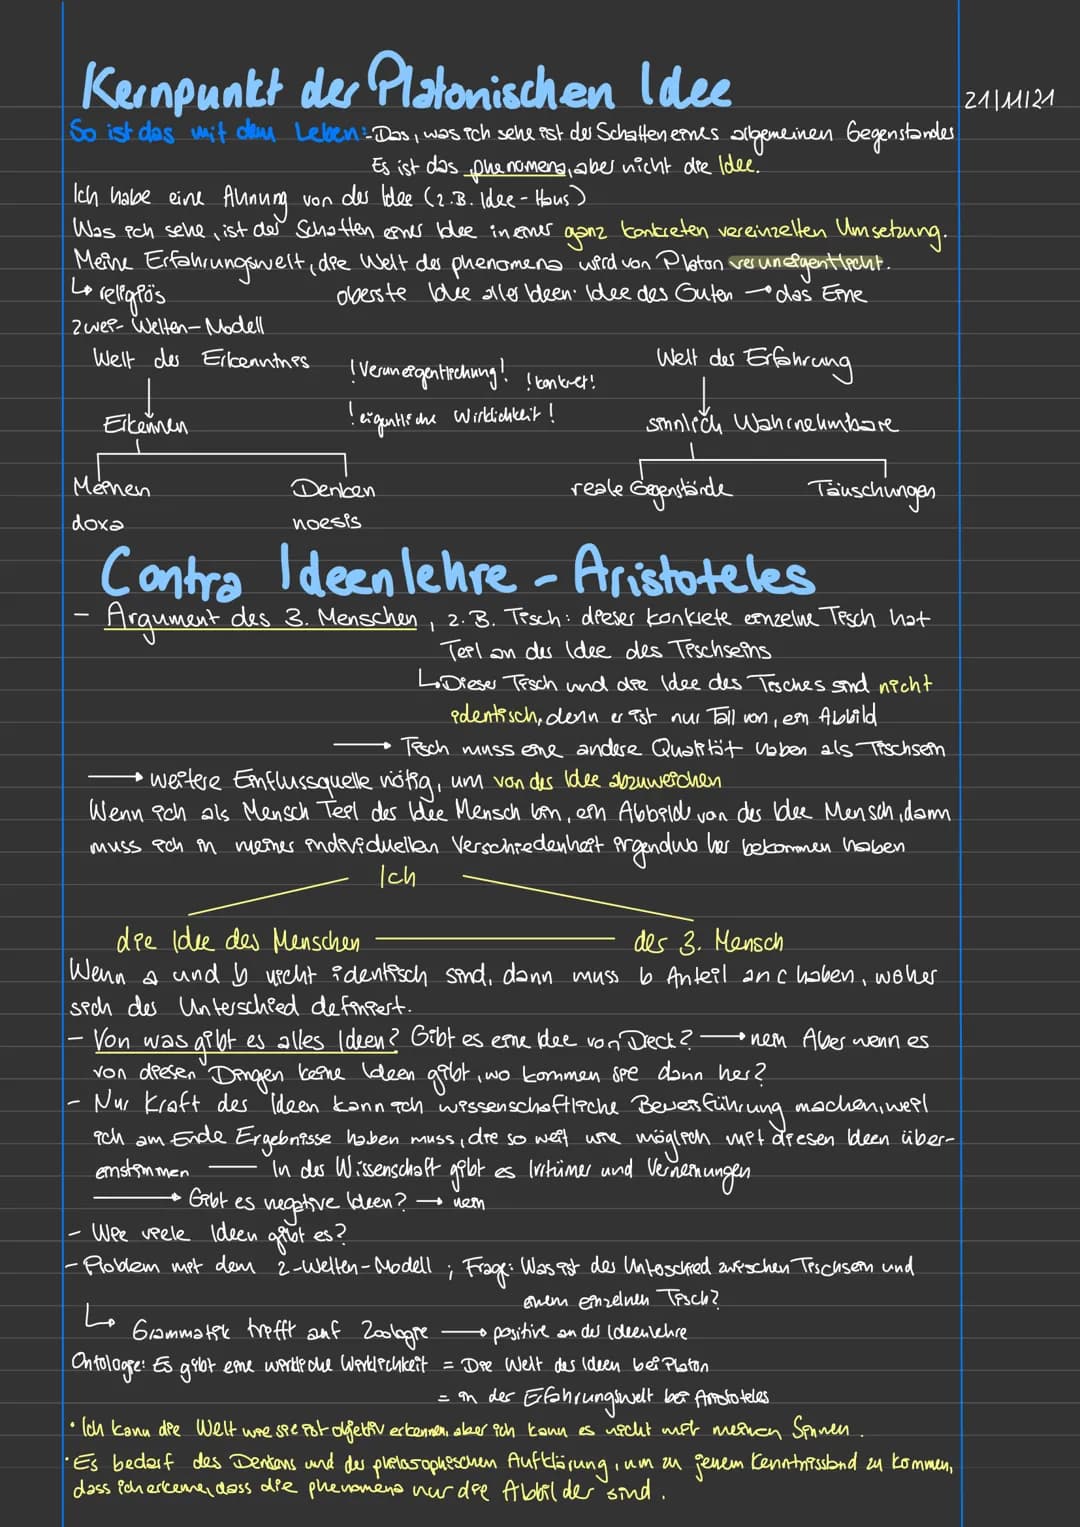 Kernpunkt der Platonischen Idee
21/11/21
So ist das mit dem Leben: - Das, was ich sehe ist der Schatten eines allgemeinen Gegenstandes
Es ist das phenomena, aber nicht die Idee.
Ich habe eine Ahnung von der Idee (z.B. Idee - Haus)
Was ich sehe, ist der Schatten einer Idee in einer ganz konkreten vereinzelten Umsetzung.
Meine Erfahrungswelt, die Welt der phenomena wird von Platon veruneigentlicht.
↳ religiös oberste Idee aller Ideen: Idee des Guten → das Eine
Zwei-Welten-Modell
Welt der Erkenntnis !Veruneigentlichung! !konkret! Welt der Erfahrung
Erkennen !eigentliche Wirklichkeit! sinnlich Wahrnehmbare
Meinen Denken reale Gegenstände Täuschungen
doxa noesis
Contra Ideenlehre - Aristoteles
- Argument des 3. Menschen, z.B. Tisch: dieser konkrete einzelne Tisch hat
Teil an der Idee des Tischseins
↳ Dieser Tisch und die Idee des Tisches sind nicht
identisch, denn er ist nur Teil von, ein Abbild
→ Tisch muss eine andere Qualität haben als Tischsein
→ weitere Einflussquelle nötig, um von der Idee abzuweichen
Wenn ich als Mensch Teil der Idee Mensch bin, ein Abbild von der Idee Mensch, dann
muss ich in meiner individuellen Verschiedenheit irgendwo her bekommen haben
Ich
die Idee des Menschen der 3. Mensch
Wenn a und b nicht identisch sind, dann muss b Anteil an c haben, woher
sich der Unterschied definiert.
- Von was gibt es alles Ideen? Gibt es eine Idee von Dreck? → nein Aber wenn es
von diesen Dingen keine Ideen gibt, wo kommen sie dann her?
- Nur Kraft der Ideen kann ich wissenschaftliche Beweisführung machen, weil
ich am Ende Ergebnisse haben muss, die so weit wie möglich mit diesen Ideen über-
einstimmen — In der Wissenschaft gibt es Irrtümer und Verneinungen
→ Gibt es negative Ideen? → nein
- Wie viele Ideen gibt es?
- Problem mit dem 2-Welten-Modell; Frage: Was ist der Unterschied zwischen Tischsein und
einem einzelnen Tisch?
↳ Grammatik trifft auf Zoologie → positive an der Ideenlehre
Ontologie: Es gibt eine wirkliche Wirklichkeit = Die Welt der Ideen bei Platon
= in der Erfahrungswelt bei Aristoteles
• Ich kann die Welt wie sie ist objektiv erkennen, aber ich kann es nicht mit meinen Sinnen.
• Es bedarf des Denkens und der philosophischen Aufklärung, um zu jenem Kenntnisstand zu kommen,
dass ich erkenne, dass die phenomena nur die Abbilder sind.